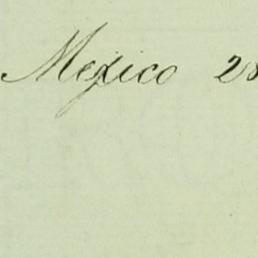 Mexico 28